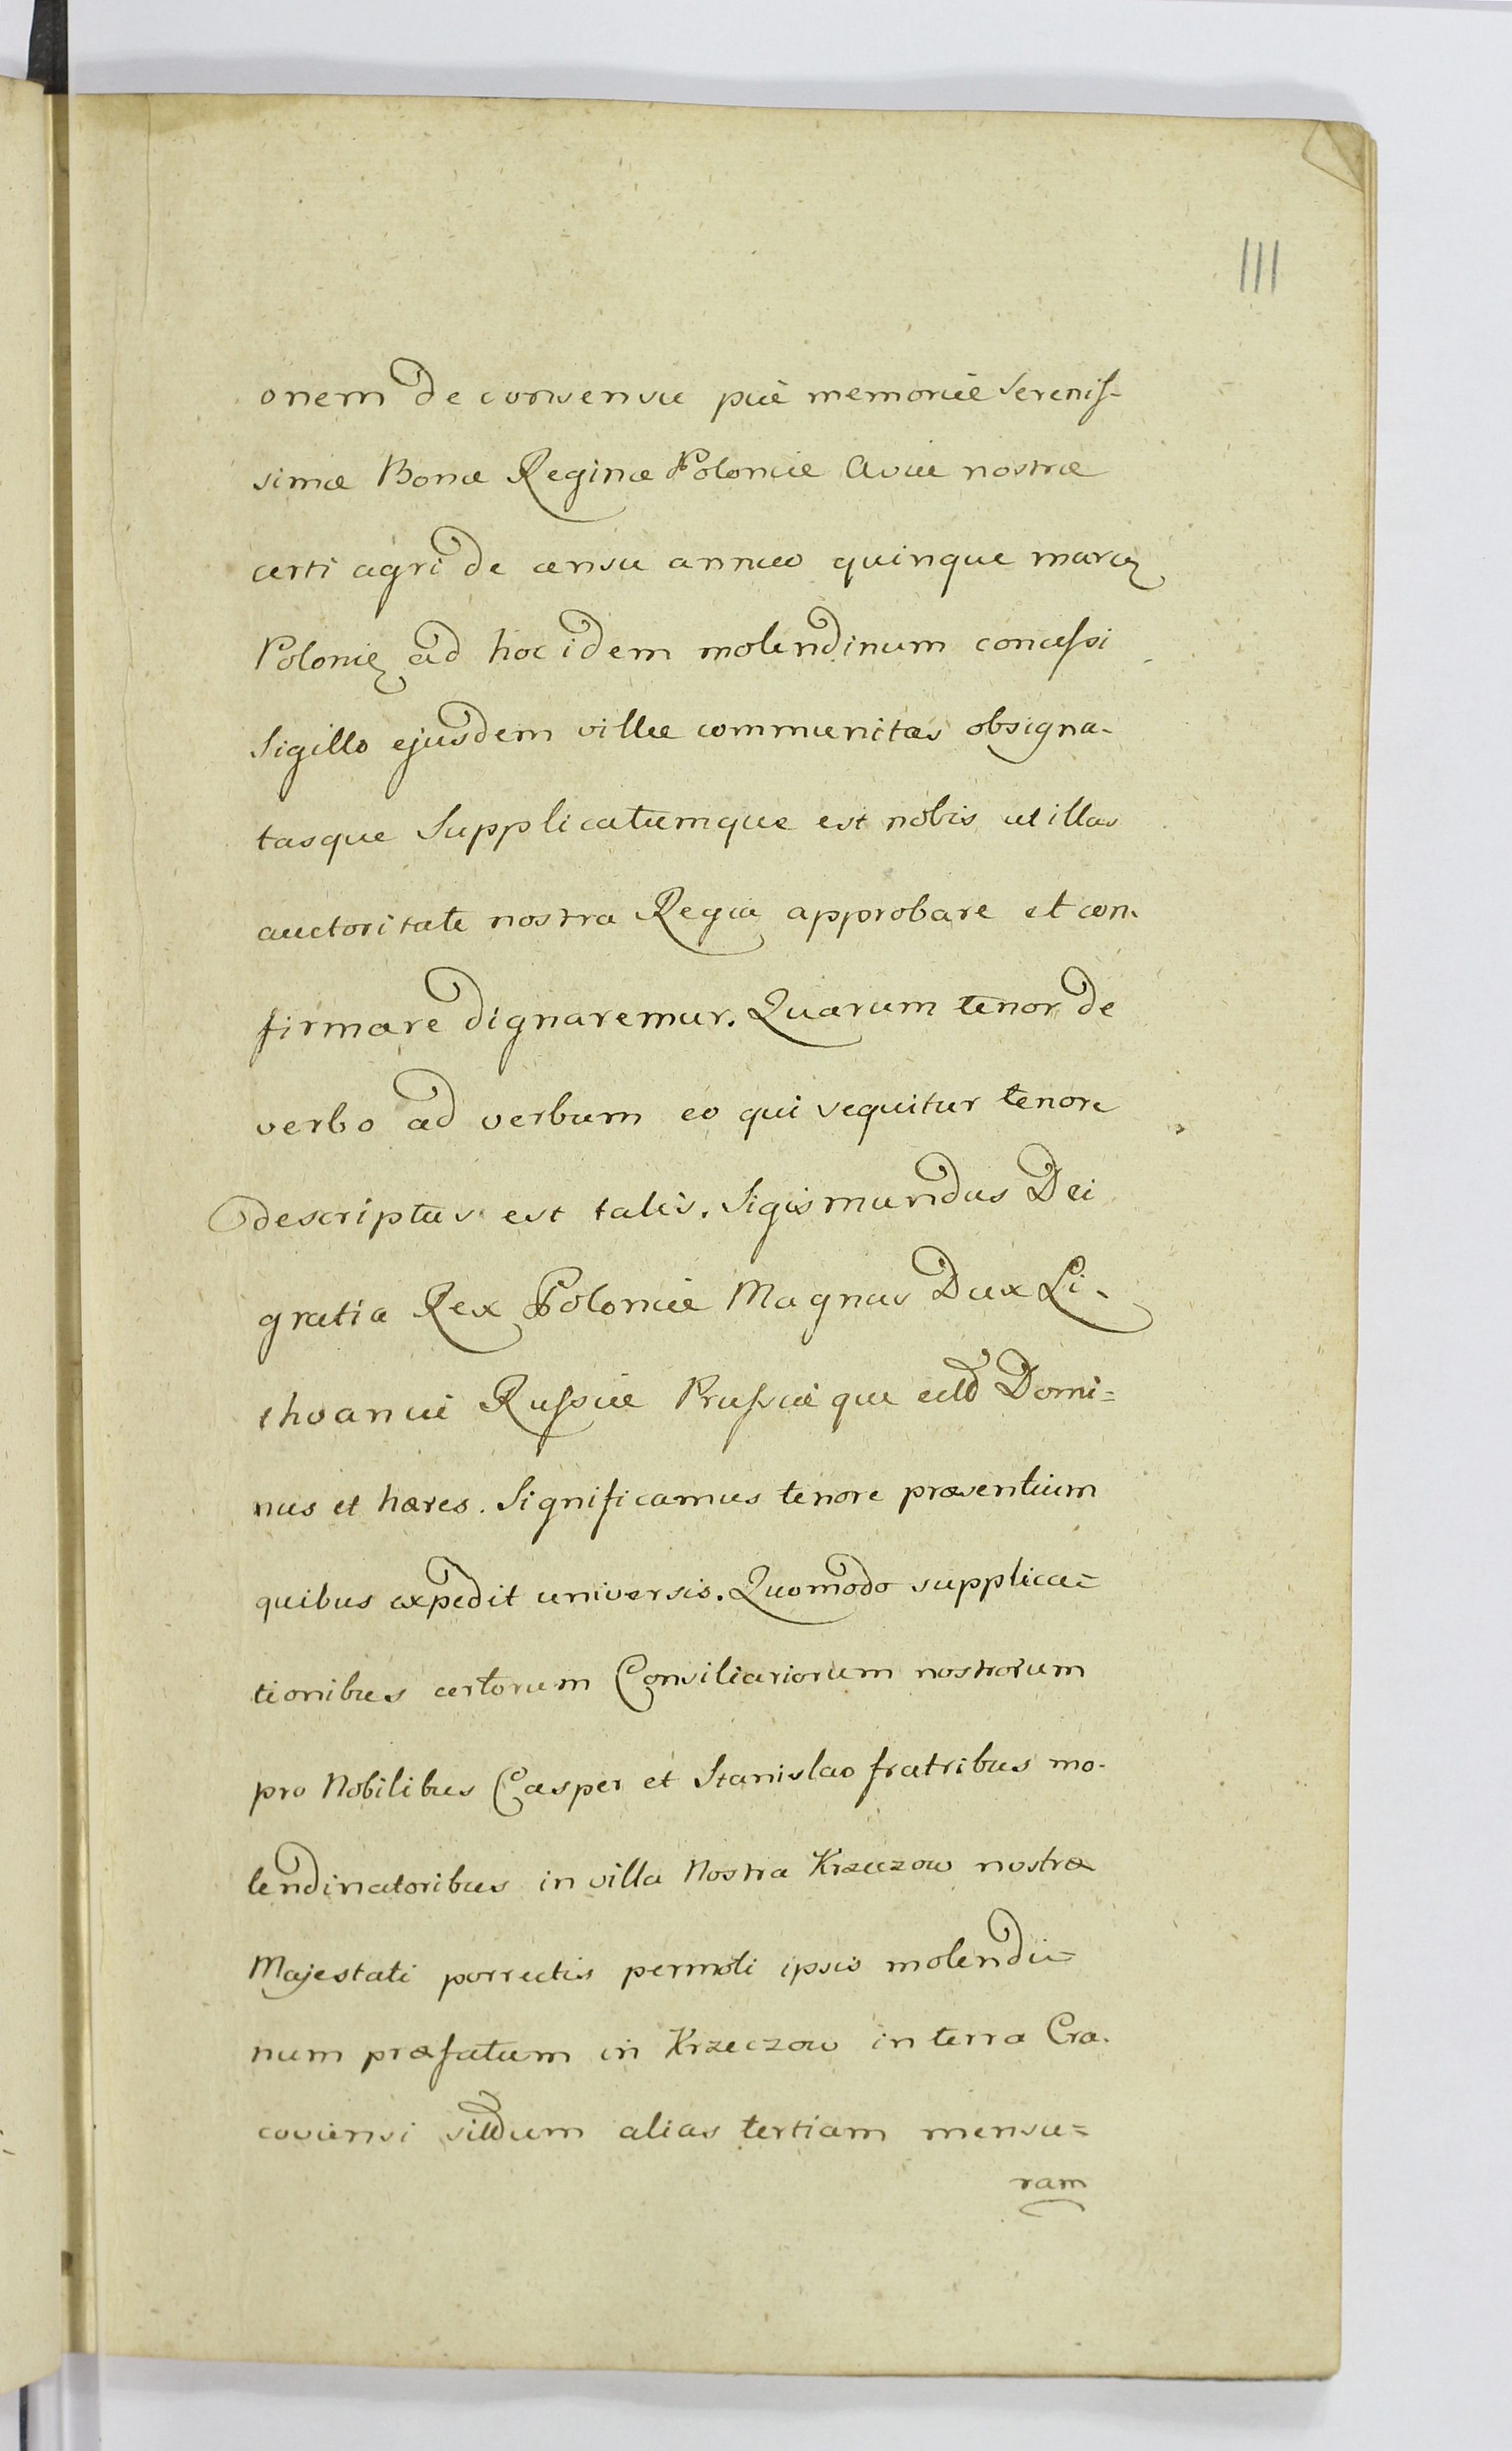 111
onem de consensu piæ memoriæ Serenis-
simæ Bonæ Reginæ Poloniæ Aviæ nostræ
certi agri de censu annuo quinque marcę
Polonię ad hoc idem molendinum concessi
Sigillo ejusdem villæ communitas obsigna-
tasque Supplicatumque est nobis ut illas
auctoritate nostra Regia approbare et con-
firmare dignaremur. Quarum tenor de
verbo ad verbum eo qui sequitur tenore
descriptus est talis. Sigismundus Dei
gratia Rex Poloniæ Magnus Dux Li-
thvaniæ Russiæ Prussiæque Domi=
nus et hæres. Significamus tenore præsentium
quibus expedit universis. Quomodo supplica=
tionibus certorum Consiliariorum nostrorum
pro Nobilibus Casper et Stanislao fratribus mo-
lendinatoribus in villa Nostra Krzeczow nostræ
Majestati porrectis permoti ipsis molendi=
num præfatum in Krzeczow in terra Cra-
coviensi alias tertiam mensu=
ram